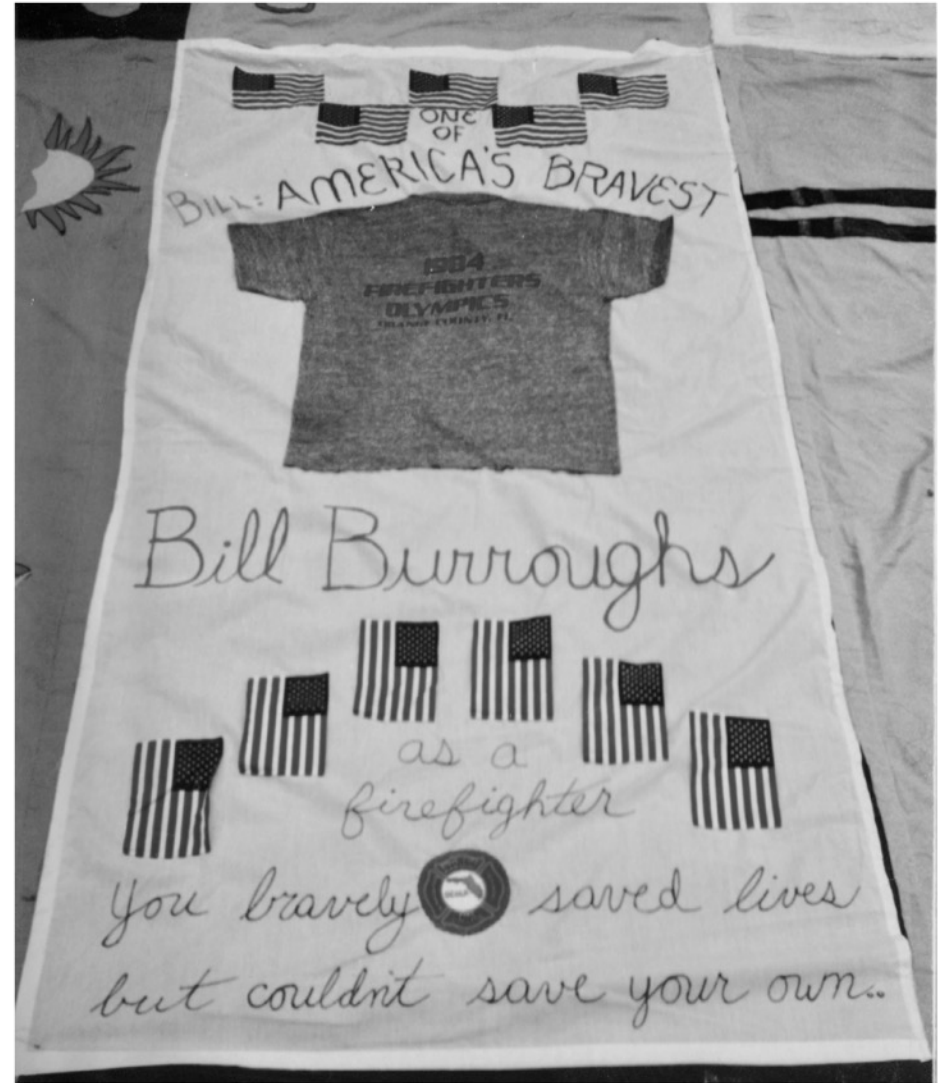 ONE
OF
BILL: AMERICA'S BRAVEST
1984
FIREFIGHTERS
OLYMPICS
ORANGE COUNTY, FL.
Bill Burroughs
as a
firefighter
You bravely saved lives
but couldn't save your own..